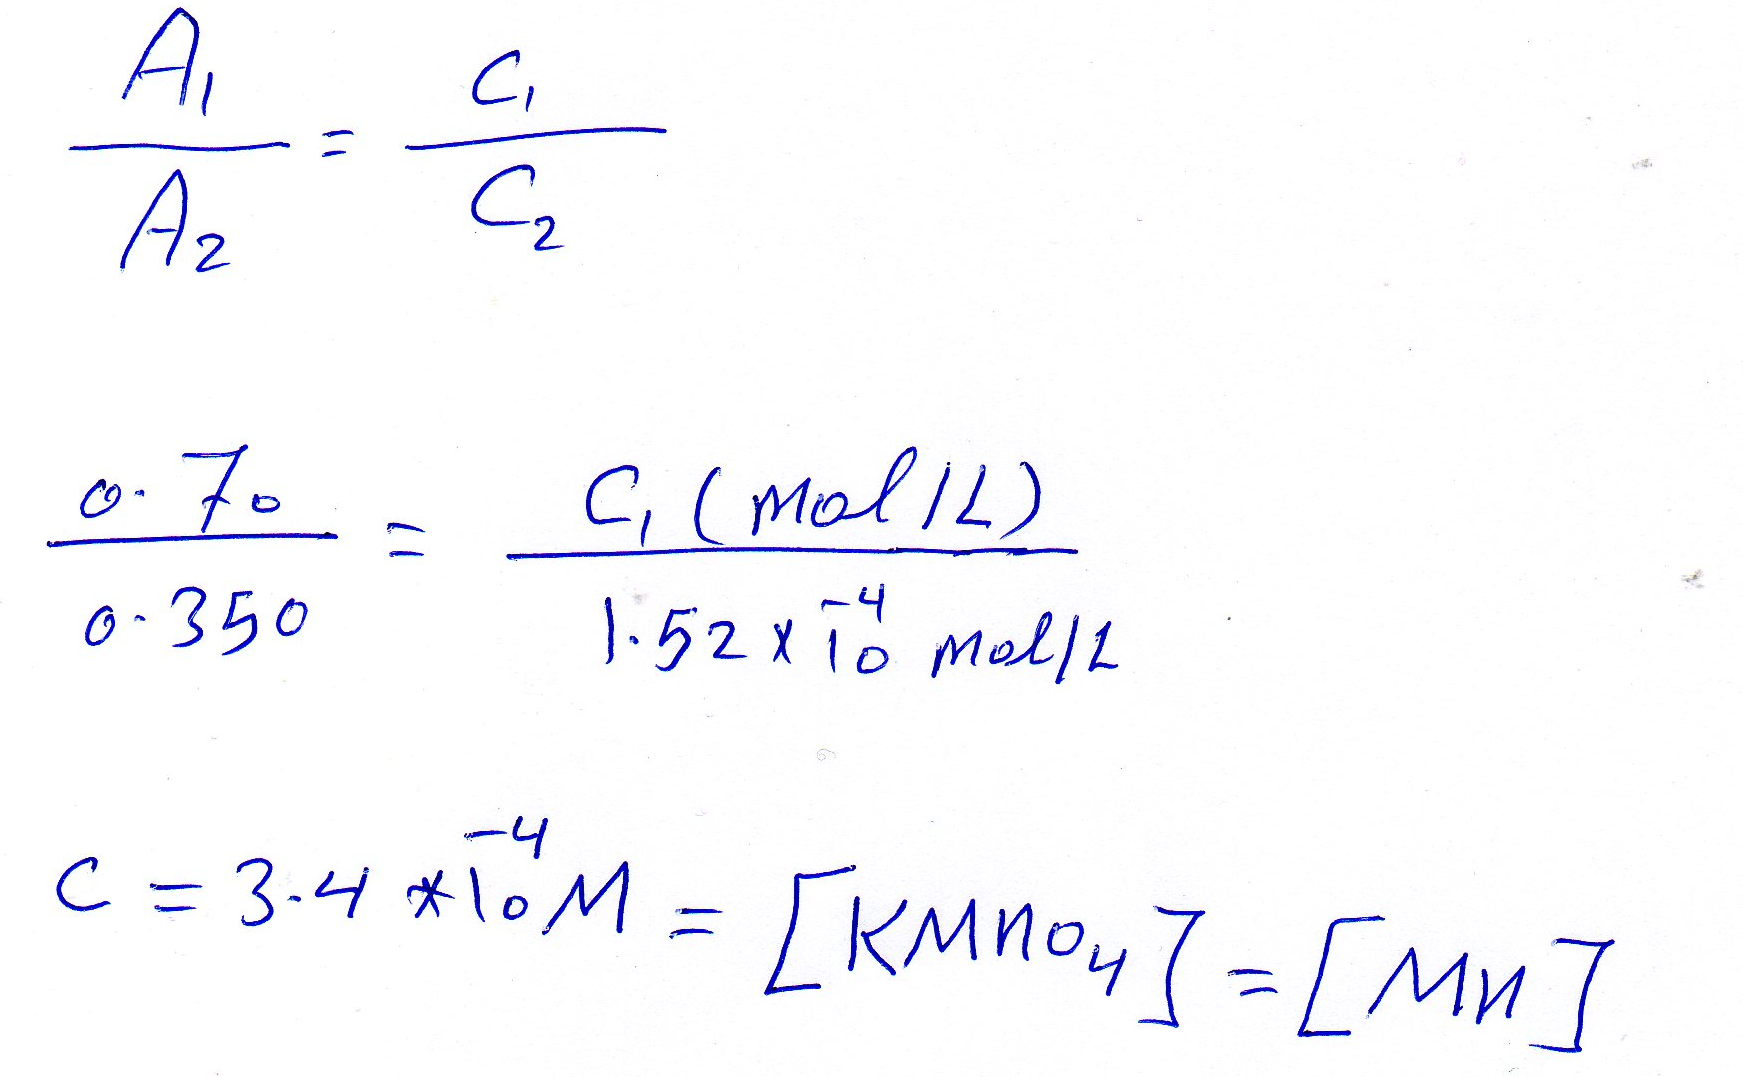 A₁/A₂ = C₁/C₂
0.70/0.350 = C₁ (mol/L)/1.52 x 10⁻⁴ mol/L
C = 3.4 *10⁻⁴ M = [KMnO₄] = [Mn]